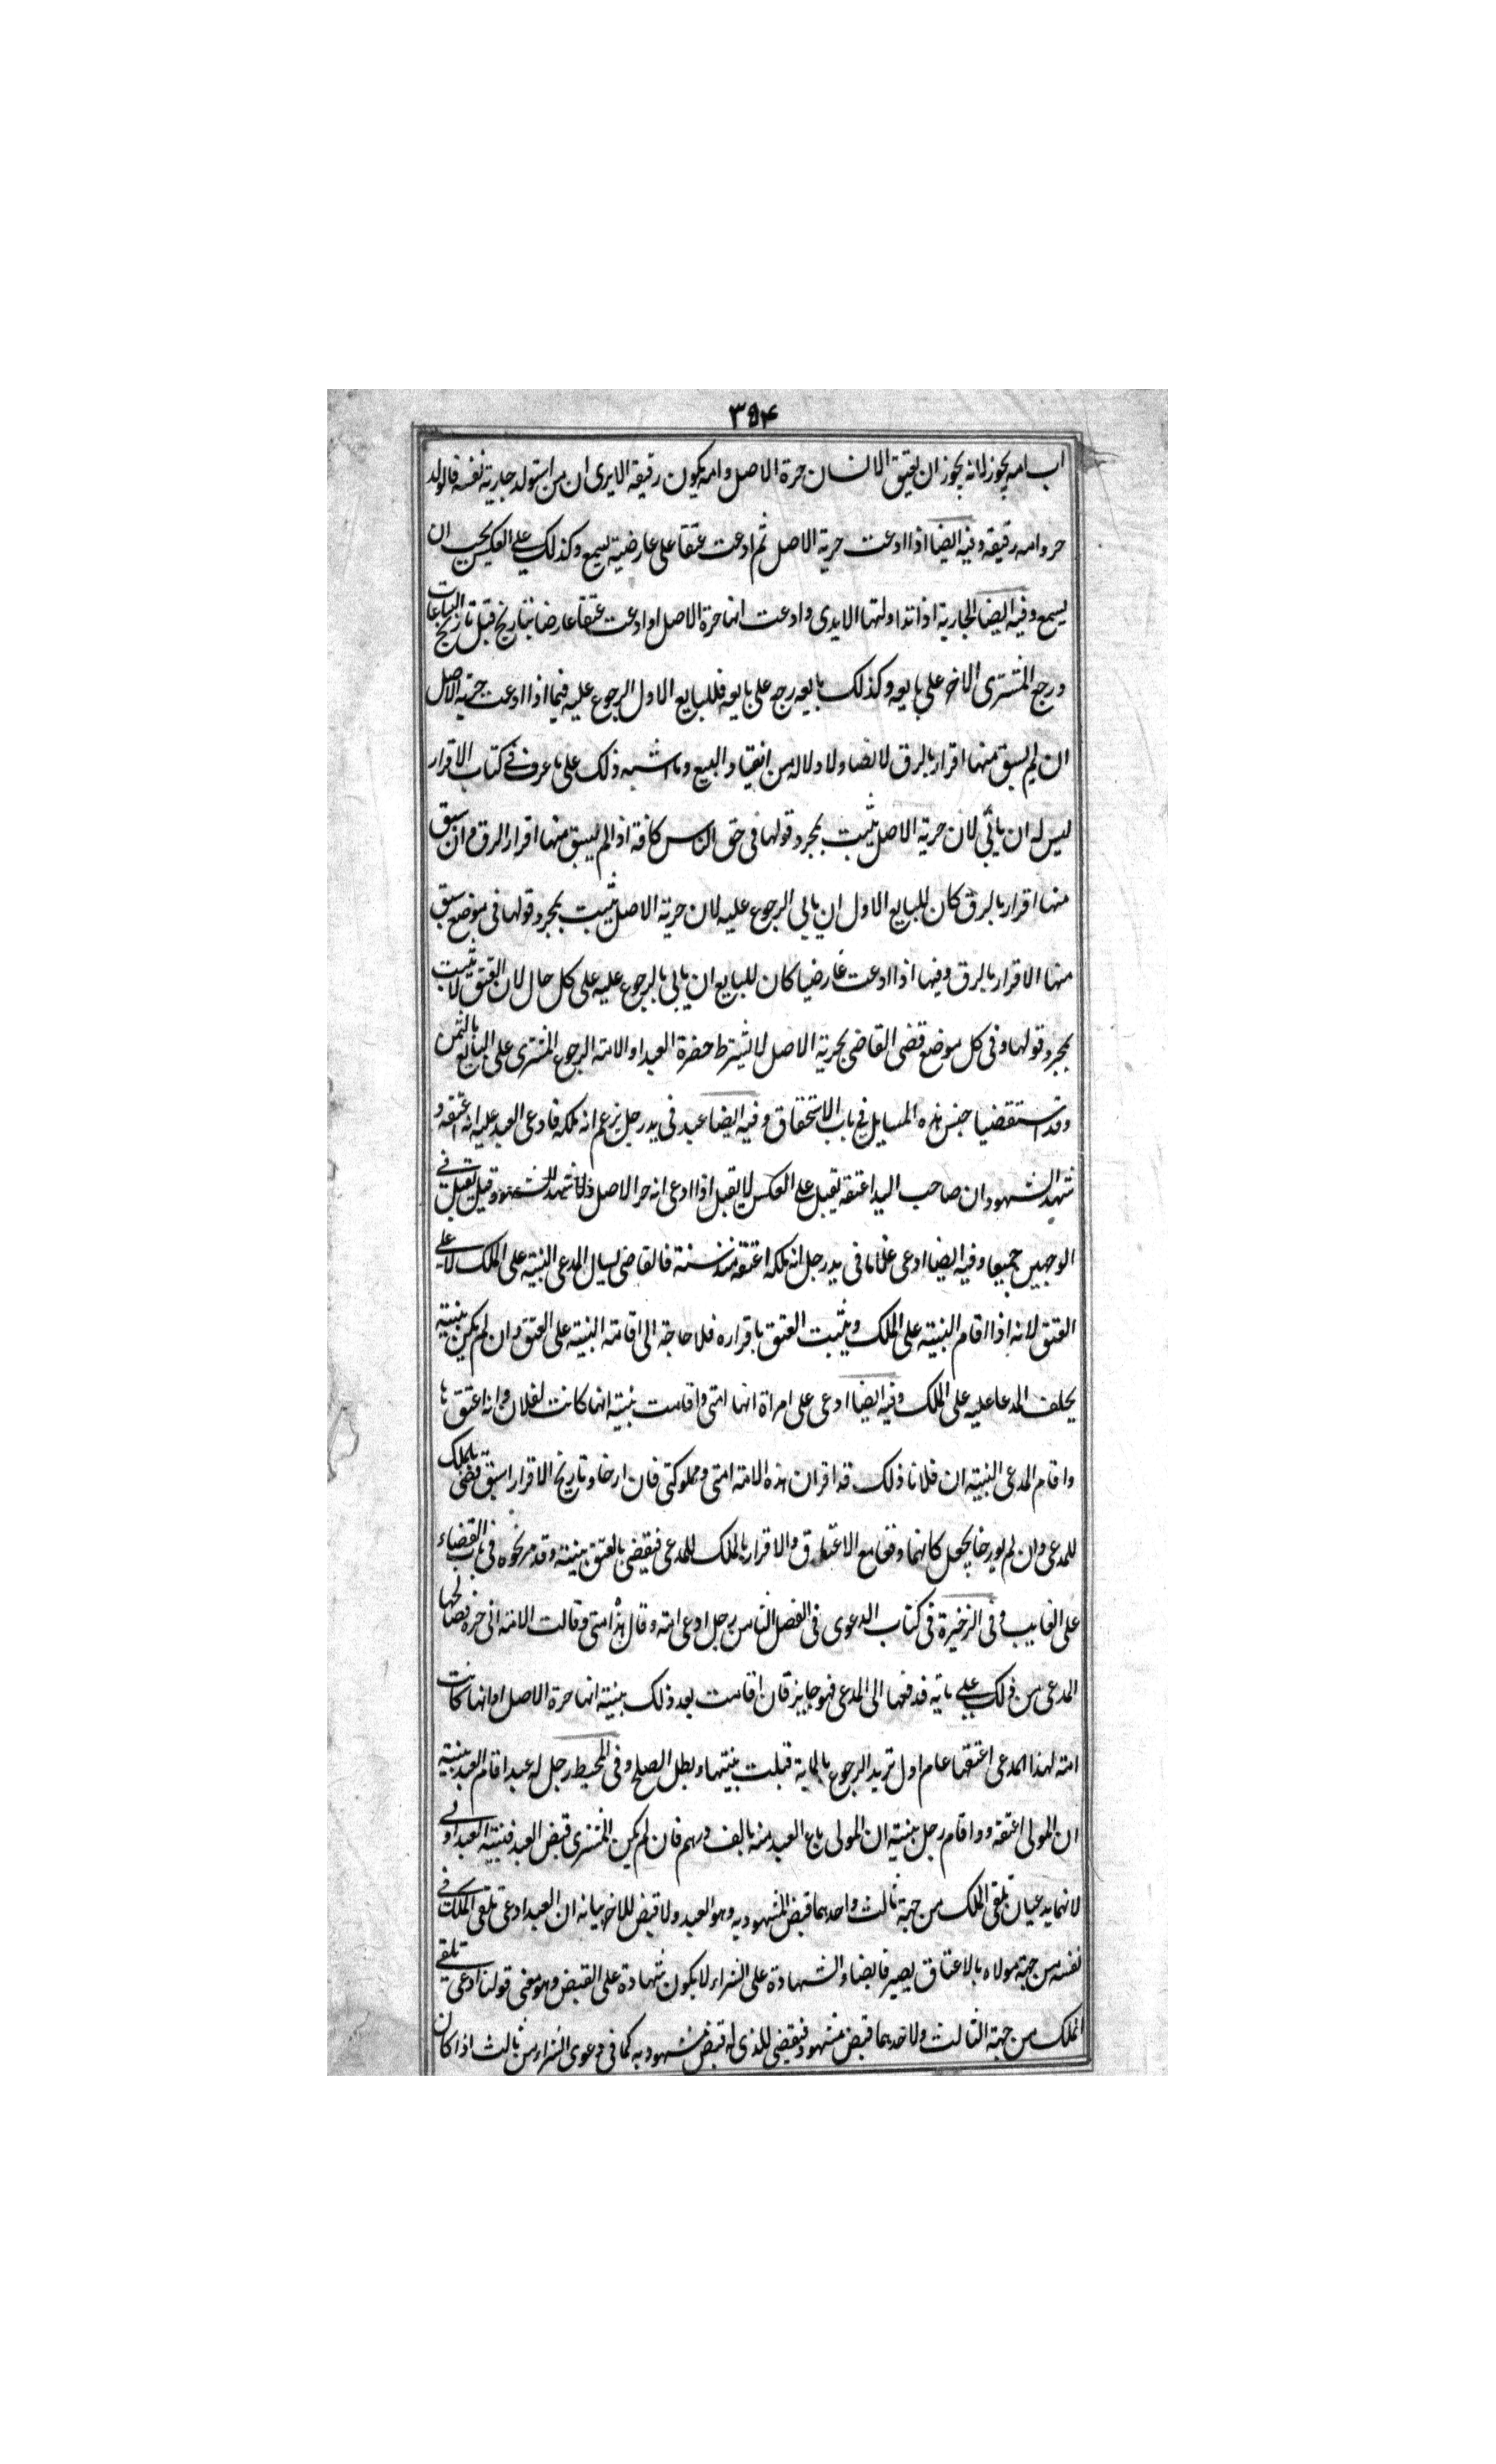 ٣٥٤
اب امه يجوز لانه يجوز ان يعتق الانسان حرة الاصل وامه يكون رقيقة الا يرى ان من استولد جارية نفسه فالولد
حر وامه رقيقة وفيه ايضا اذا ادعت حرية الاصل ثم ادعت عتقا على عارضية يسمع وكذلك على العكس يجب ان
يسمع وفيه ايضا الجارية اذا تداولتها الايدى وادعت انها حرة الاصل او ادعت عتقا عارضا بتاريخ قبل تاريخ البياعات
ورجع المشترى الاخر على بايعه وكذلك بايعه رجع على بايعه فللبايع الاول الرجوع عليه فيما اذا ادعت حرية الاصل
ان لم يسبق منها اقرار بالرق لا نصا ولا دلالة من انقياد البيع وما اشبه ذلك على ما عرف فى كتاب الاقرار
ليس له ان يأبى لان حرية الاصل يثبت بمجرد قولها فى حق الناس كافة اذا لم يسبق منها اقرار الرق وان سبق
منها اقرار بالرق كان للبايع الاول ان يابى الرجوع عليه لان حرية الاصل يثبت بمجرد قولها فى موضع سبق
منها الاقرار بالرق وفيها اذا ادعت عارضيا كان للبايع ان يابى بالرجوع عليه على كل حال لان العتق لا يثبت
بمجرد قولها وفى كل موضع قضى القاضى بحرية الاصل لا يشترط حضرة العبد او الامة الرجوع المشترى على البايع بالثمن
وقد استقضيا جنس هذه المسايل فى باب الاستحقاق وفيه ايضا عبد فى يد رجل يزعم انه ملكه فادعى العبد عليه انه اعتقه و
شهد الشهود ان صاحب اليد اعتقه يقبل على العكس لا يقبل اذا ادعى انه حر الاصل وقيل يقبل فى
الوجهين جميعا وفيه ايضا ادعى غلاما فى يد رجل انه ملكه اعتقه منذ سنة فالقاضى يسال المدعى البينة على الملك لا على
العتق لانه اذا اقام البينة على الملك ويثبت العتق باقراره فلا حاجة الى اقامة البينة على العتق وان لم يكن بينة
يحلف المدعا عليه على الملك وفيه ايضا ادعى على امراة انها امتى واقامت بينة انها كانت لفلان وانه اعتق ها
واقام المدعى البينة ان فلانا ذلك قد اقر ان هذه الامة امتى ومملوكتى فان ارخا وتاريخ الاقرار اسبق قضى بالملك
للمدعى وان لم يورخا يجعل كانهما وقعا مع الاعتاق والاقرار بالملك للمدعى فيقضى بالعتق ببينة وقد مر نحوه فى باب القضاء
على الغايب وفى الذخيرة فى كتاب الدعوى فى الفصل الثامن رجل ادعى امة وقال هذه امتى وقالت الامة انى حرة فصالحها
المدعى من ذلك على ماية فدفعها الى المدعى فهو جايز فان اقامت بعد ذلك بينة انها حرة الاصل او انها كانت
امة لهذا المدعى اعتقها عام اول تريد الرجوع بالماية قبلت بينتها وبطل الصلح وفى المحيط رجل له عبد اقام العبد بينة
ان المولى اعتقه وو اقام رجل بينة ان المولى باع العبد منه بالف درهم فان لم يكن المشترى قبض العبد فبينة العبد اولى
لانهما يدعيان تلقى الملك من جهة ثالث واحدهما قبض المشهود به وهو العبد ولا قبض للاخر بيانه ان العبد ادعى تلقى الملك فى
نفسه من جهة مولاه بالاعتاق يصير قابضا والشهادة على الشراء لا يكون شهادة على القبض وهو معنى قولنا ادعى تلقى
الملك من جهة الثالث ولاحدهما قبض مشهود فيقضى للذى له قبض مشهود به كما فى دعوى الشراء من ثالث اذا كان